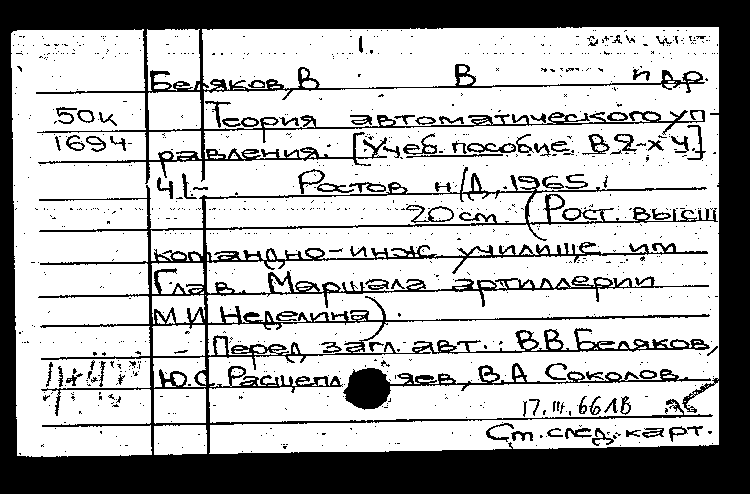 1.
Беляков, В В и др.
50к Теория автоматического уп-
1694 равления. [Учеб. пособие. В 2-х ч.]
Ч 1- Ростов н/Д, 1965.
20 cm. (Рост. высш
командно-инж училище им
Глав. Маршала артиллерии
М.И Неделина).
- Перед загл. авт.: В.В. Беляков,
Ю.С. Расщепляев, В.А Соколов.
17.III.66 ЛВ
Ст. след. карт.